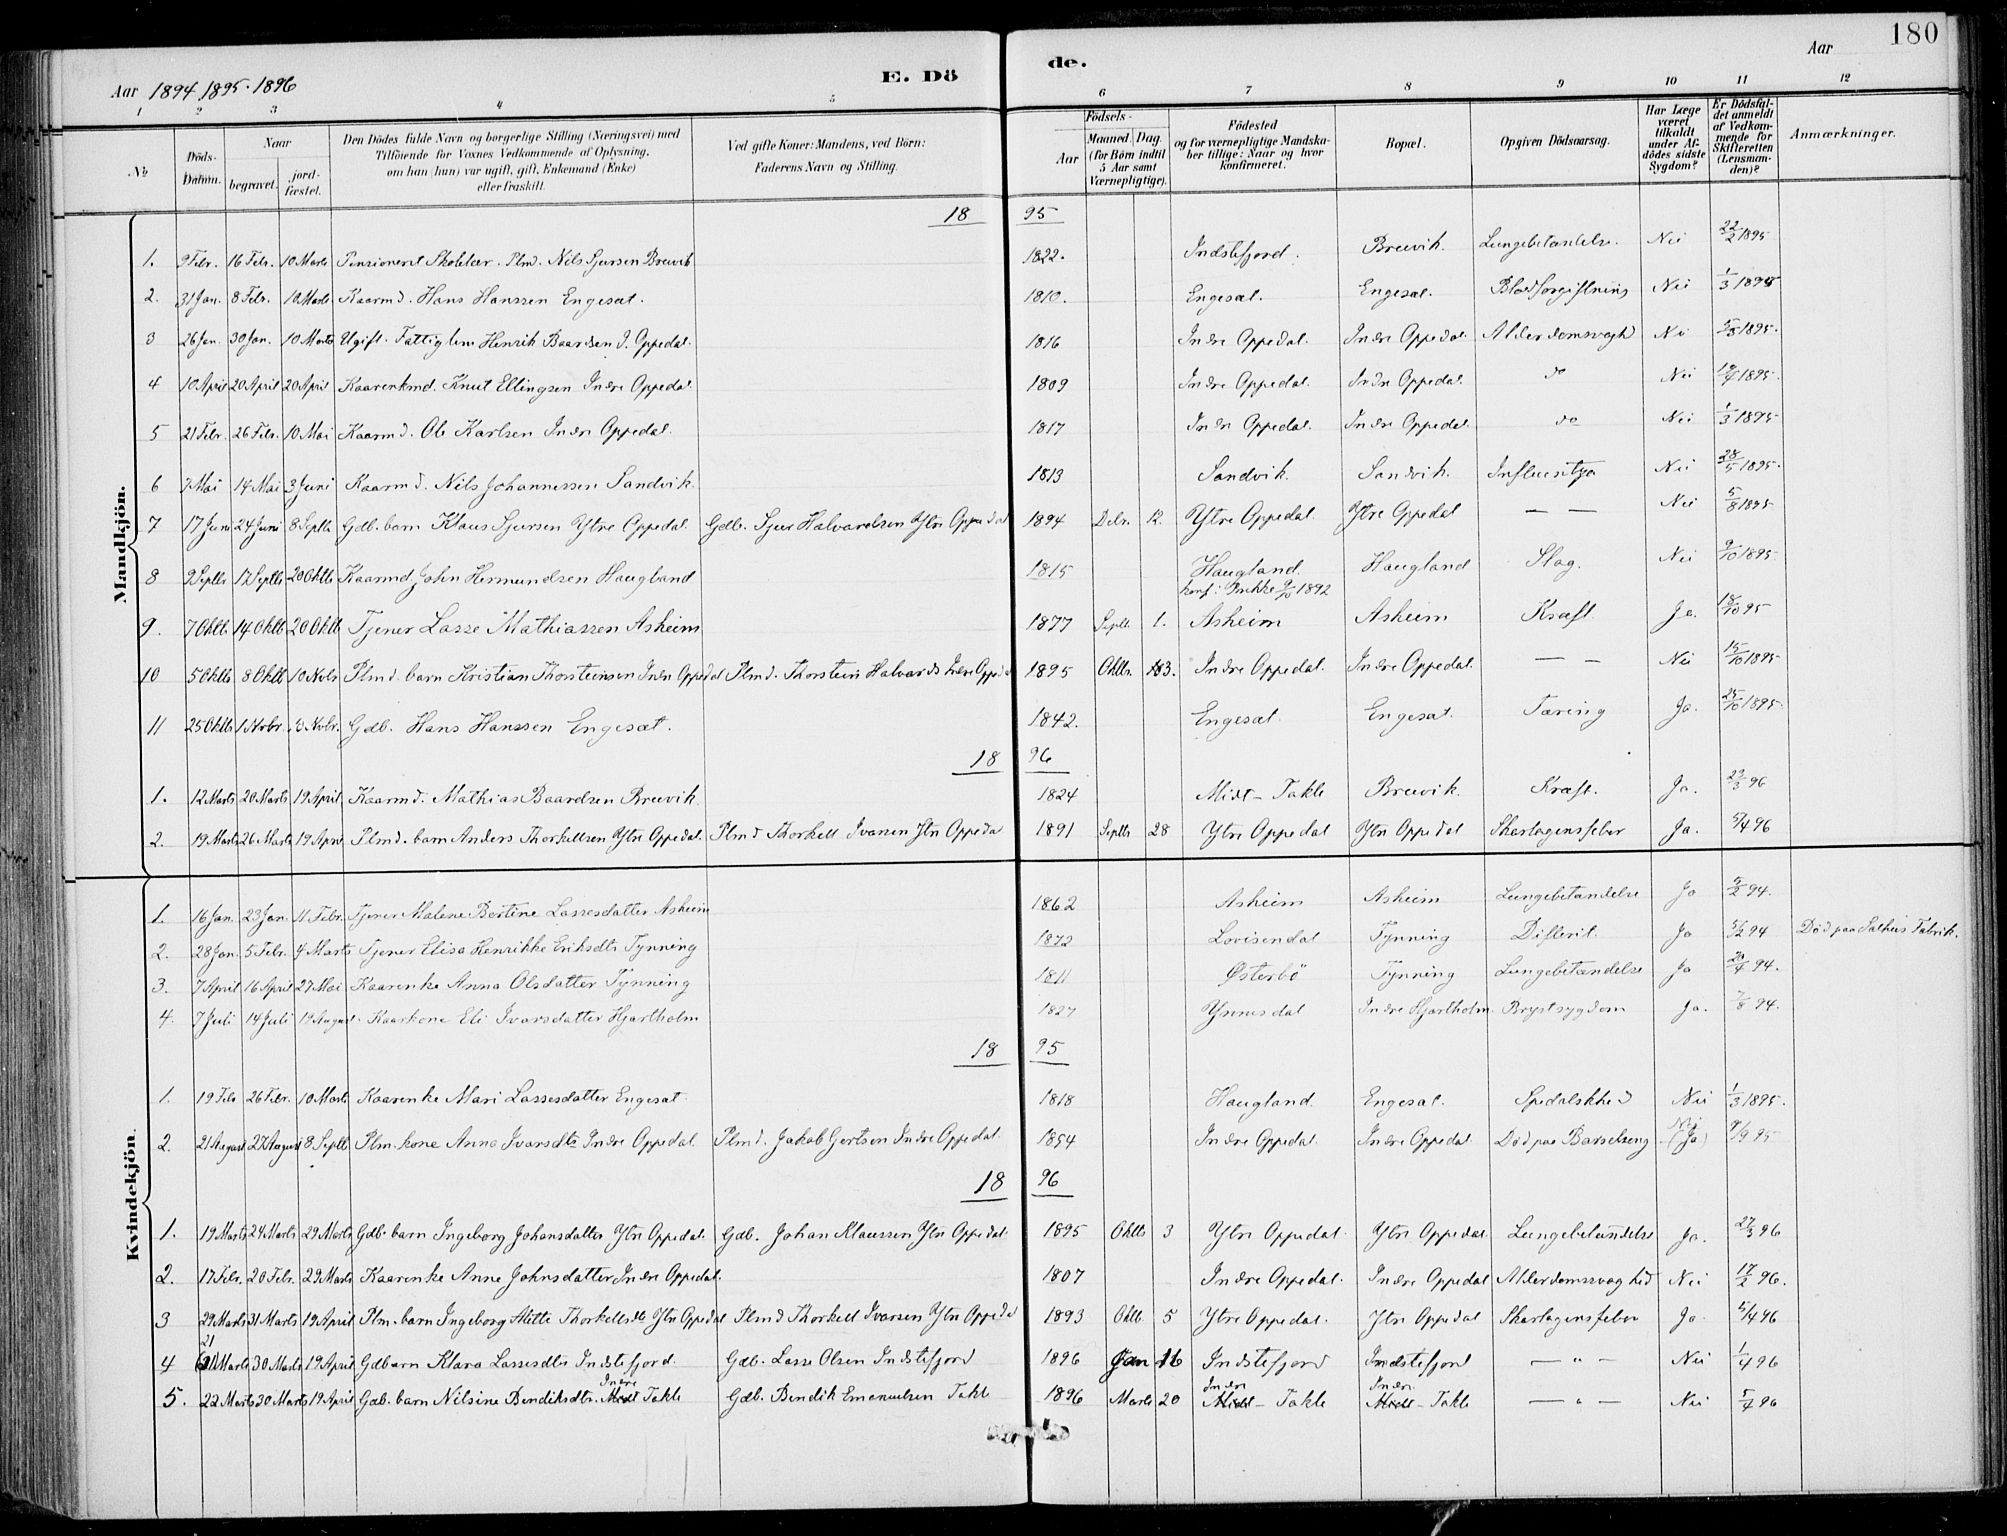 180
Aar 1894 1895. 1896
E. Dö
de.
Aar
1 2 3 4 5 6 7 8 9 10 11 12
№
Döds-Datum.
Naar
begravet.
jord-fæstet.
Den Dödes fulde Navn og borgerlige Stilling (Næringsvei) med
Tilföiende for Voxnes Vedkommende af Oplysning,
om han (hun) var ugift, gift, Enkemand (Enke)
eller fraskilt.
Ved gifte Koner: Mandens, ved Börn:
Faderens Navn og Stilling.
Födsels-
Aar
Maaned. Dag.
(for Börn indtil
5 Aar samt
Værnepligtige).
Födested
og for værnepligtige Mandska-
ber tillige: Naar og hvor
konfirmeret.
Bopæl.
Opgiven Dödsaarsag.
Har Læge
været
tilkaldt
under Af-
dödes sidste
Sygdom?
Er Dödsfal-
det anmeldt
af Vedkom-
mende for
Skifteretten
(Lensman-
den)?
Anmærkninger.
Mandkjön.
18 95
1. 9 Febr. 16 Febr. 10 Marts Pensioneret Skolelær. Plmd. Nils Sjursen Breivik 1822. Indstefjord. Breivik. Lungebetændelse. Nei 22/2 1895
2. 31 Jan. 8 Febr. 10 Marts Kaarmd. Hans Hanssen Engesæt. 1810. Engesæt. Engesæt. Blodforgiftning Nei 1/3 1895
3 26 Jan. 30 Jan. 10 Marts Ugift. Fattiglem Henrik Baardsen I. Oppedal. 1816 Indre Oppedal. Indre Oppedal. Alderdomsvagh Nei 1895.
4 10 April 20 April 20 April Kaarenkmd. Knut Ellingsen Indre Oppedal 1809 Indre Oppedal. Indre Oppedal. do Nei 1895.
5 21 Febr. 26 Febr. 10 Mai Kaarmd. Ole Karlsen Indre Oppedal. 1817 Indre Oppedal. Indre Oppedal. do Nei 1/3 1895
6 7 Mai 14 Mai 3 Juni Kaarmd. Nils Johannessen Sandvik. 1813 Sandvik. Sandvik. Influentza Nei 28/5 1895.
7 17 Juni 24 Juni 8 Septb. Gdb. barn Klaus Sjursen Ytre Oppedal. Gdb. Sjur Halvardsen Ytre Oppedal 1894 Debr. 12. Ytre Oppedal. Ytre Oppedal — — Nei 5/8 1895.
8 9 Septb 17 Septb 20 Oktb Kaarmd John Hermundsen Haugland 1815 Haugland Haugland Slag. Nei 9/10 1895.
konf: Brekke 9/10 1892
9. 7 Oktb. 14 Oktb 20 Oktb Tjener Lasse Mathiassen Asheim 1877 Septb. 1. Asheim Asheim Kræft. Ja. 18/10 95
10 5 Oktb 8 Oktb 10 Nvbr Plmd. barn Kristian Thorsteinsen Indre Oppedal Plmd. Thorstein Halvards Indre Oppedal 1895 Oktbr. 3. Indre Oppedal. Indre Oppedal — — Nei 15/10 1895
11 25 Oktb 1 Nvbr. Nvbr. Gdb. Hans Hanssen Engesæt. 1842. Engesæt. Engesæt. Tæring Ja. 25/10 1895.
18 96
1. 12 Marts 20 Marts 19 April Kaarmd. Mathias Baardsen Breivik. 1824 Midt-Takle Breivik. Kræft. Ja. 96
2. 19 Marts 26 Marts 19 April Plmd. barn Anders Thorkellsen Ytre Oppedal. Plmd Thorkell Ivarsen Ytre Oppedal 1891 Septb 28 Ytre Oppedal Ytre Oppedal Skarlagensfeber Ja. 5/4 96
Kvindekjön.
1. 16 Jan. 23 Jan. 11 Febr. Tjener Malene Bertine Lassesdatter Asheim 1862 Asheim Asheim Lungebetændelse Ja 9/2 94.
2. 28 Jan. 5 Febr. 4 Marts Tjener Elisa Henrikke Eriksdtr Tynning 1872 Lovisendal Tynning Difterit. Ja 5/2 94 Død paa Salhus Fabrik.
3. 7 April 16 April 27 Mai Kaarenke Anna Olsdatter Tynning 1811 Østerbö Tynning Lungebetændelse Ja 20/4 94.
4. 7 Juli 14 Juli 19 August Kaarkone Eli Ivarsdatter Hjartholm 1827 Ynnesdal Indre Hjartholm. Brystsygdom Ja. 7/8 94.
18 95
1. 19 Febr 26 Febr. 10 Marts Kaarenke Mari Lassesdatter Engesæt. 1818 Haugland. Engesæt. Spedalskhed Nei 1/3 1895.
2. 21 August 27 August 8 Septb Plm. kone Anna Ivarsdtr Indre Oppedal. Plmd. Jakob Gertsen Indre Oppedal. 1854 Indre Oppedal Indre Oppedal Død paa Barselseng Nei (Ja) 7/9 95
18 96
1. 19 Marts 24 Marts 29 Marts Gdb. barn Ingeborg Johansdatter Ytre Oppedal. Gdb. Johan Klaussen Ytre Oppedal. 1895 Oktb 3 Ytre Oppedal. Ytre Oppedal. Lungebetændelse Ja. 27/3 96
2. 17 Febr. 20 Febr. 29 Marts Kaarenke Anne Johnsdatter Indre Oppedal. 1807 Indre Oppedal. Indre Oppedal Alderdomssvaghed Nei 17/2 96.
3 29 Marts 31 Marts 19 April Plm. barn Ingeborg Mette Thorkellsdtr Ytre Oppedal Plmd Thorkell Ivarsen Ytre Oppedal 1893 Oktb. 5 Ytre Oppedal. Ytre Oppedal Skarlagensfeber Ja. 5/4 96
4 21 Marts 30 Marts 19 April Gdbarn Klara Lassesdtr Indstefjord. Gdb. Lasse Olsen Indstefjord 1896 Jan 16 Indstefjord Indstefjord — " — Nei 1/4 96
5. 22 Marts 30 Marts 19 April Gdb. barn Nilsine Bendiksdtr. Midt Indre Takle Gdb. Bendik Emanuelsen Takle 1896 Marts 20 Midt Indre - Takle Midt Indre - Takle — " — Nei 5/7 96